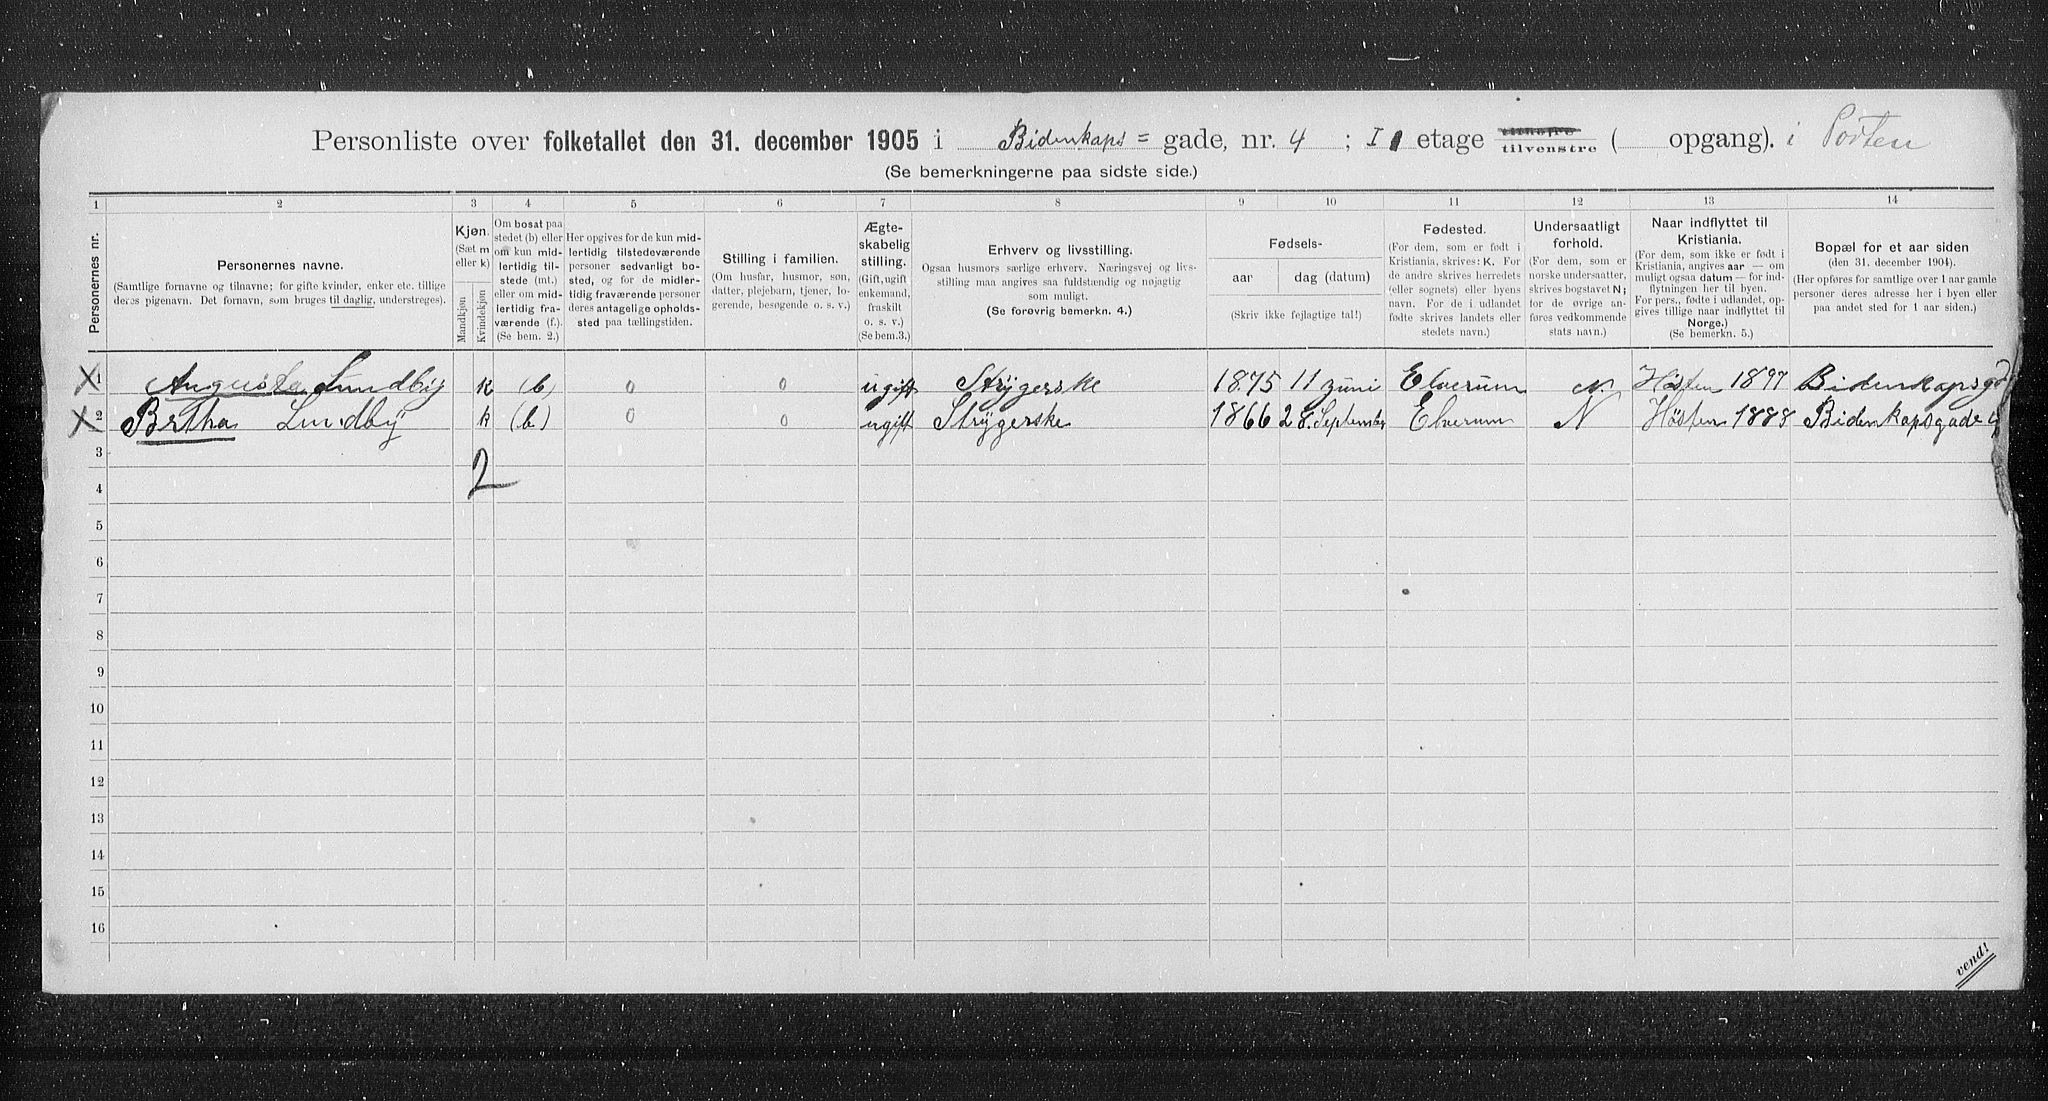 Personliste over folketallet den 31. december 1905 i Bidenkaps = gade, nr. 4 ; I etage tilhøire tilvenstre ( opgang). i Porten
(Se bemerkningerne paa sidste side.)
1 2 3 4 5 6 7 8 9 10 11 12 13 14
Personernes nr.
Personernes navne.
(Samtlige fornavne og tilnavne; for gifte kvinder, enker etc. tillige
deres pigenavn. Det fornavn, som bruges til daglig, understreges).
Kjøn.
(Sæt m
eller k)
Mandkjøn
Kvindekjøn
Om bosat paa
stedet (b) eller
om kun midlertidig til-
stede (mt.)
eller om mid-
lertidig fra-
værende (f.).
(Se bem. 2.)
Her opgives for de kun mid-
lertidig tilstedeværende
personer sedvanlig bo-
sted, og for de midler-
tidig fraværende personer
deres antagelige opholds-
sted paa tællingstiden.
Stilling i familien.
(Om husfar, husmor, søn,
datter, plejebarn, tjener, lo-
gerende, besøgende o. s. v.)
Ægte-
skabelig
stilling.
(Gift, ugift
enkemand,
fraskilt
o. s. v.)
(Se bem.3.)
Erhverv og livsstilling.
Ogsaa husmors særlige erhverv. Næringsvej og livs-
stilling maa angives saa fuldstændig og nøjagtig
som muligt.
(Se forøvrig bemerkn. 4.)
Fødsels-
aar dag (datum)
(Skriv ikke fejlagtige tal!)
Fødested.
(For dem, som er født i
Kristiania, skrives: K. For
de andre skrives herredets
(eller sognets) eller byens
navn. For de i udlandet
fødte skrives landets eller
stedets navn.)
Undersaatligt
forhold.
(For dem, som er
norske undersaatter,
skrives bogstavet N;
for de øvrige an-
føres vedkommende
stats navn.)
Naar indflyttet til
Kristiania.
(For dem, som ikke er født i
Kristiania, angives aar — om
muligt ogsaa datum — for ind-
flytningen her til byen.
For pers., fødte i udlandet, op-
gives tillige naar indflyttet til
Norge.)
(Se bemerkn. 5.)
Bopæl for et aar siden
(den 31. december 1904).
(Her opføres for samtlige over 1 aar gamle
personer deres adresse her i byen eller
paa andet sted for 1 aar siden.)
X 1 Augusta Lundby k (b) 0 0 ugift Strygerske 1875 11 Juni Elverum N. Høsten 1897 Bidenkapsgd
X 2 Bertha Lundby k (b) 0 0 ugift Strygerske 1866 28. September Elverum N Høsten 1888 Bidenkapsgade 4
3
2
4
5
6
7
8
9
10
11
12
13
14
15
16
vend!